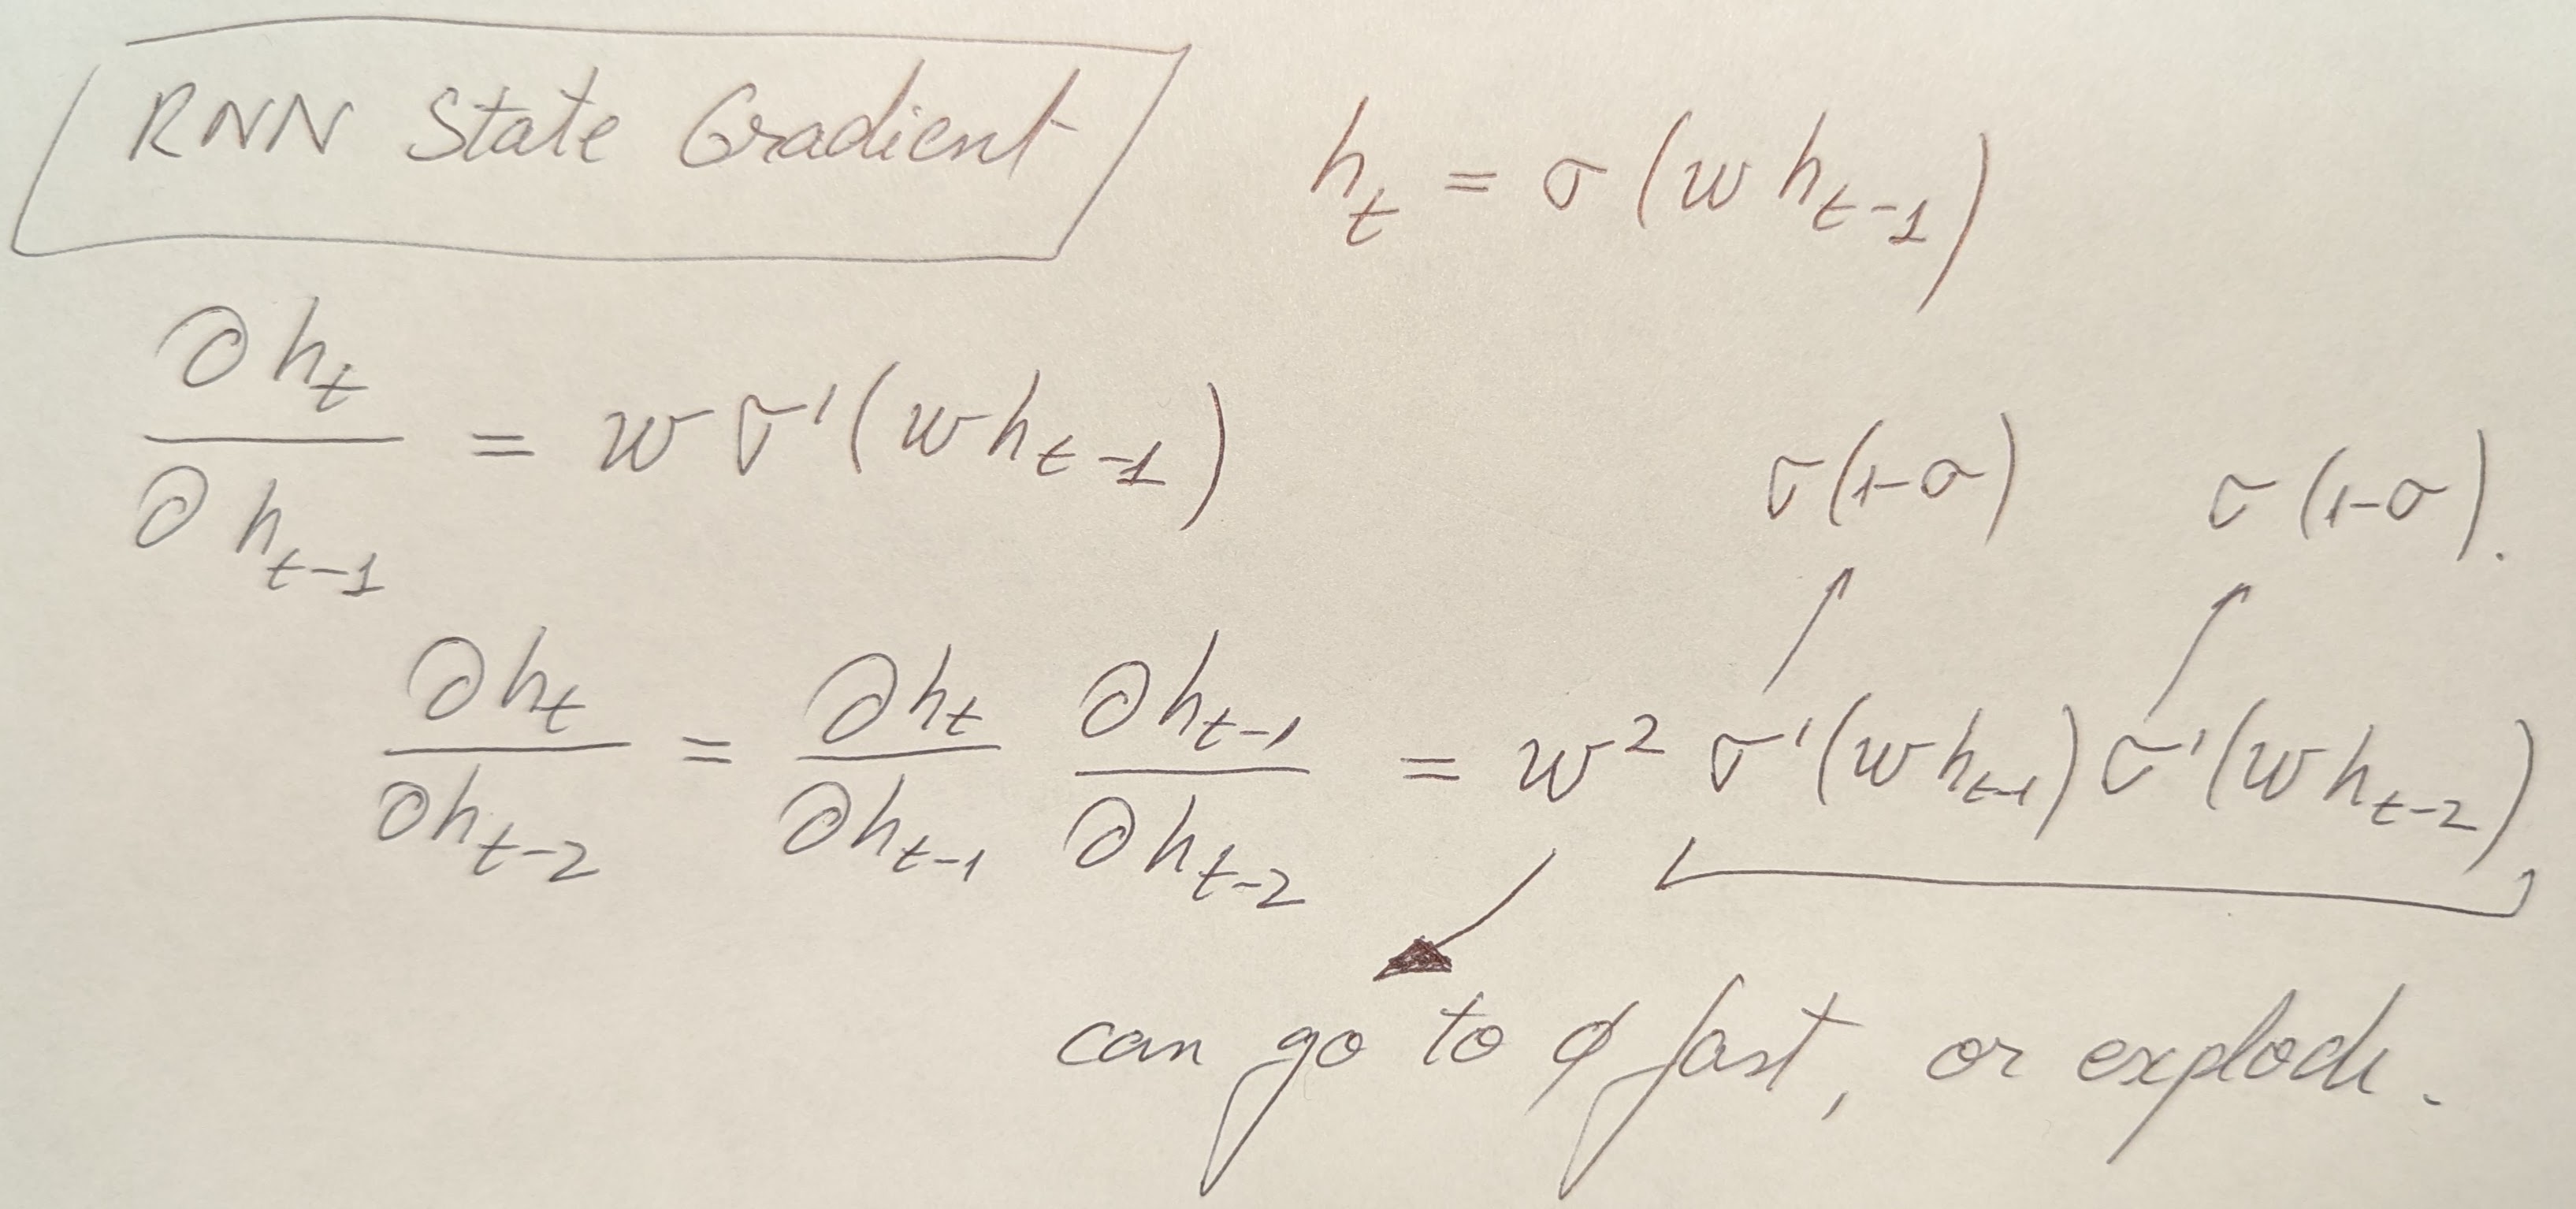 RNN State Gradient
h_t = σ(w h_{t-1})
∂h_t / ∂h_{t-1} = w σ'(w h_{t-1})
σ(1-σ) σ(1-σ).
∂h_t / ∂h_{t-2} = ∂h_t / ∂h_{t-1} ∂h_{t-1} / ∂h_{t-2} = w² σ'(w h_{t-1}) σ'(w h_{t-2})
can go to ∅ fast, or explode.